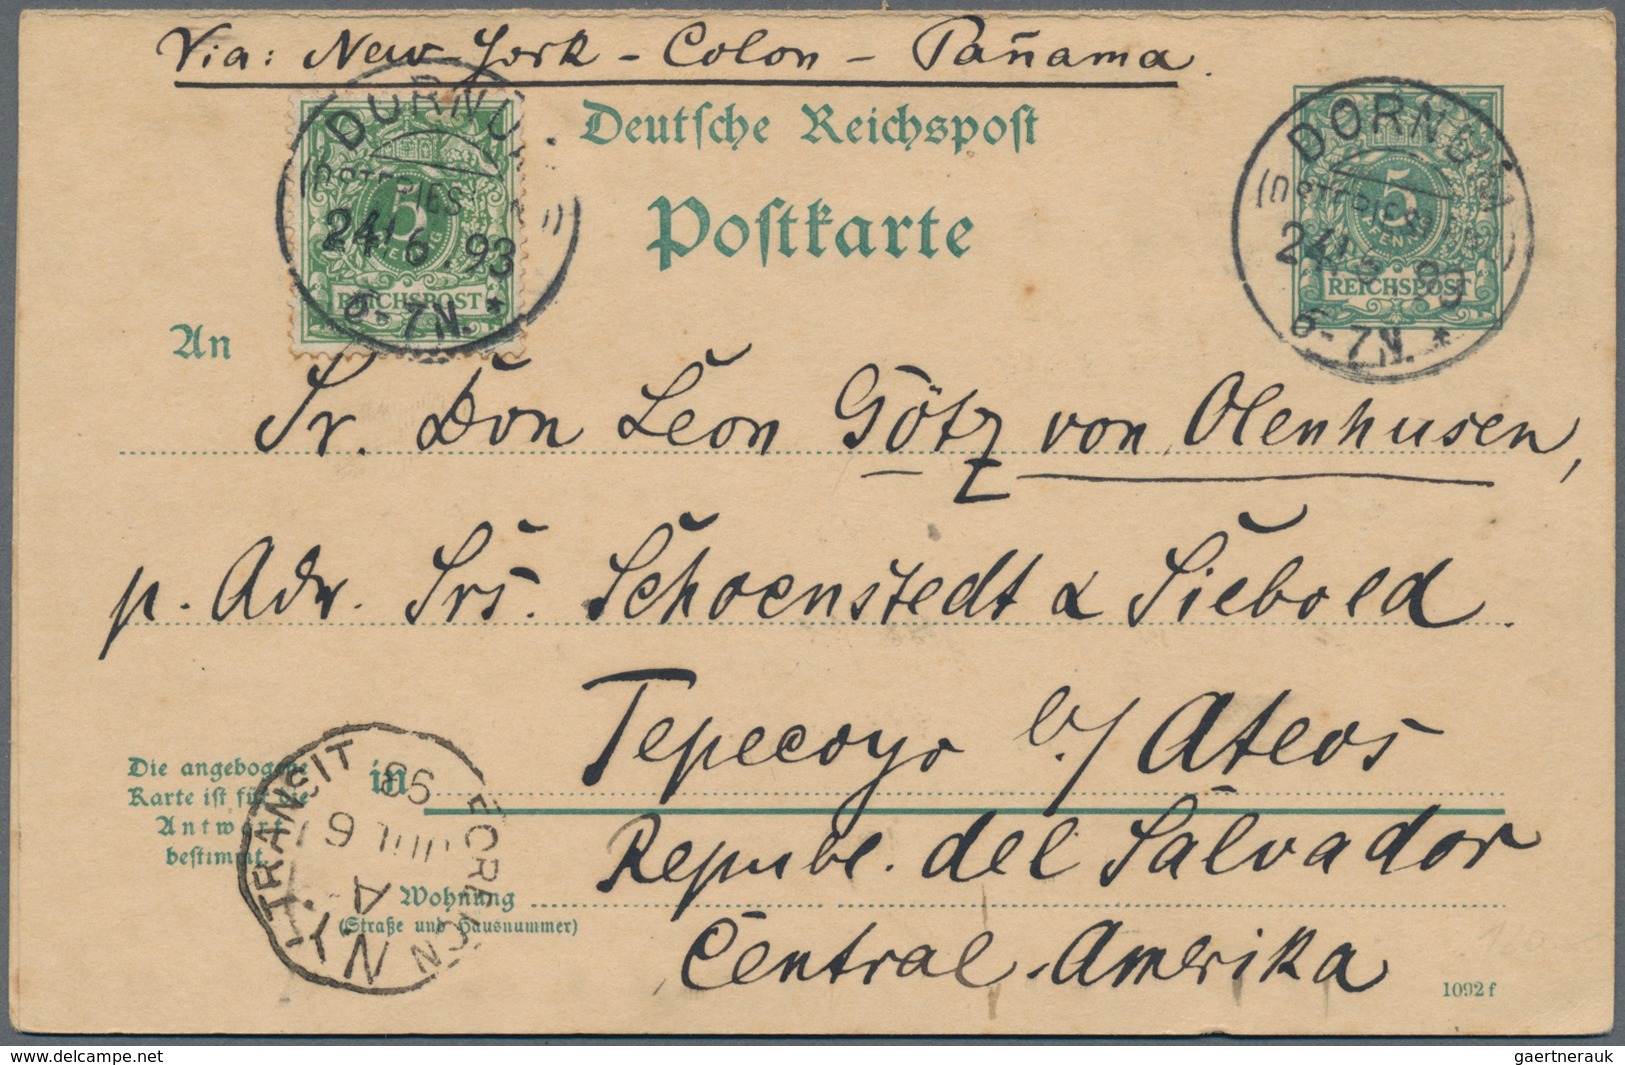 Via: New-York - Colon - Pañama.
Deutsche Reichspost
Postkarte
DORNUM
(OSTFRIESLAND)
24/6.93
6-7N. *
5
PFENNIG
REICHSPOST
DORNUM
(OSTFRIESLAND)
24/6.93
6-7N. *
5
PFENNIG
REICHSPOST
An
Sr. Don Leon Götz von Olenhusen,
p. Adr. Srs. Schoenstedt & Siebold.
Tepecoyo b/ Ateos
in
Republ. del Salvador
Central-Amerika
Die angebogene
Karte ist für die
Antwort
bestimmt.
Wohnung
(Straße und Hausnummer)
N.Y. FOREIGN
TRANSIT
A
JUL 6
93
1092 f
www.delcampe.net
gaertnerauk